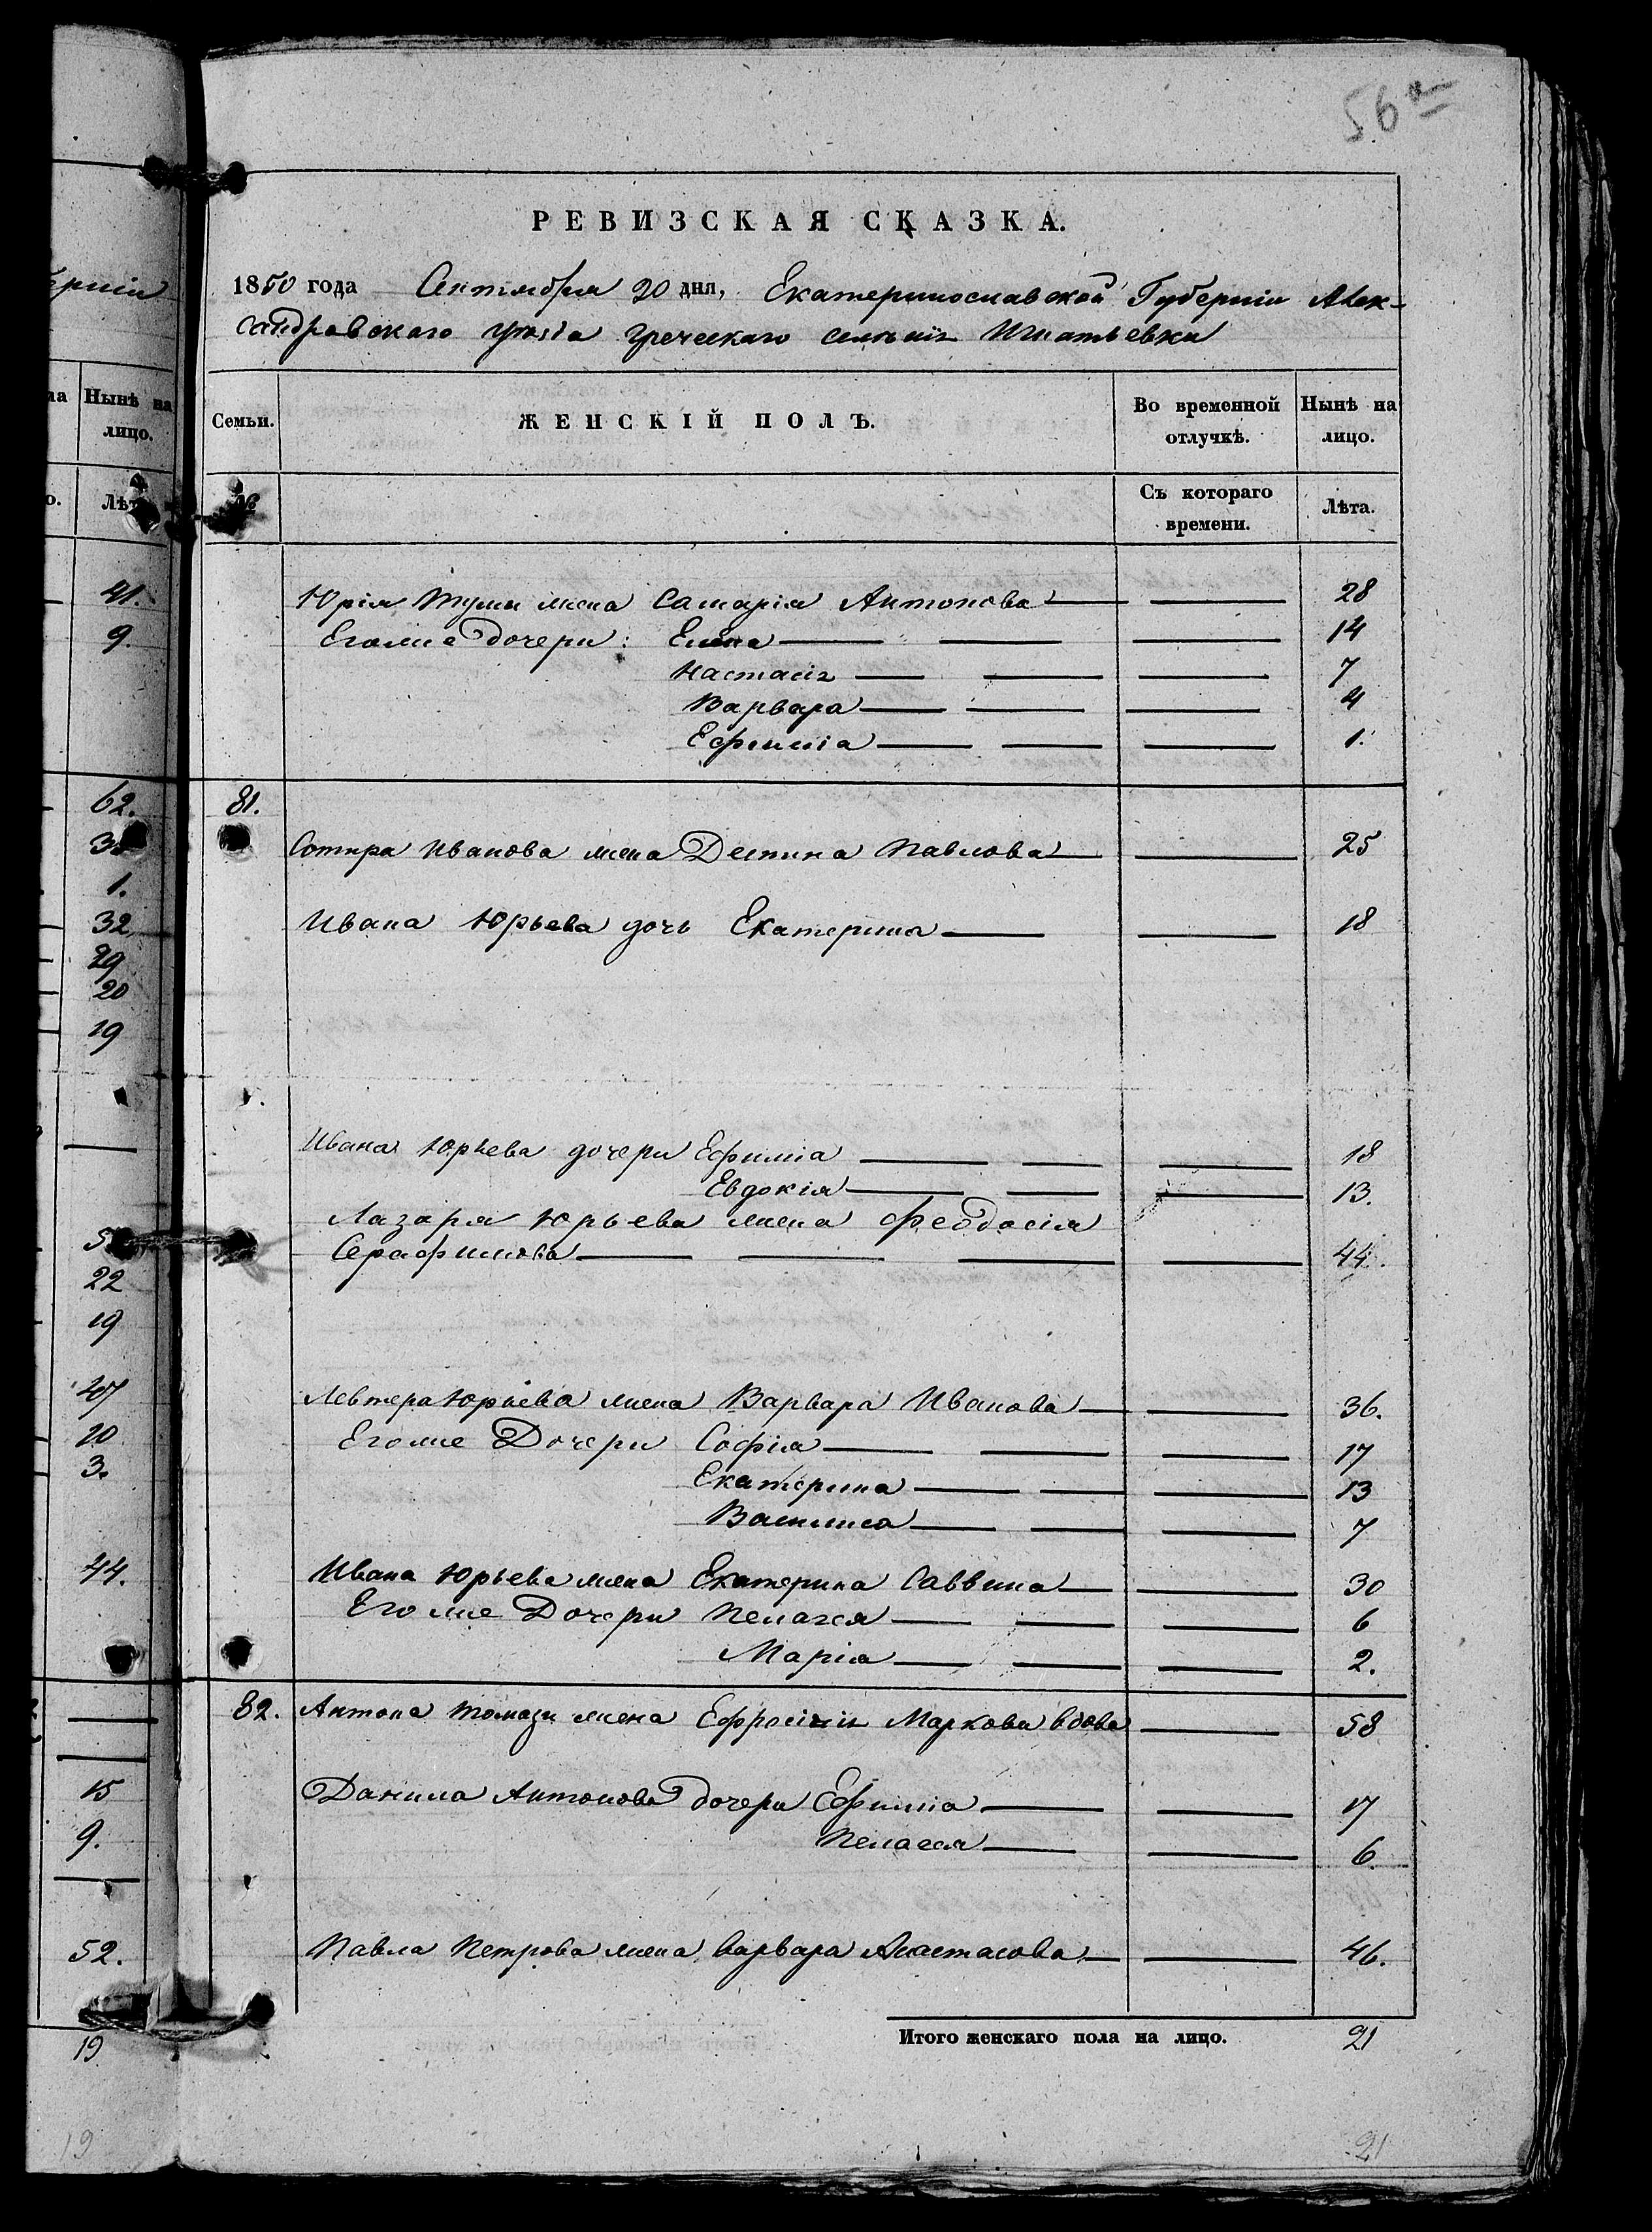 56
РЕВИЗСКАЯ СКАЗКА.
1850 года Сентября 20 дня, Екатеринославской Губерніи Алек-
сандровскаго уѣзда Греческаго селенія Игнатьевки
Семьи. ЖЕНСКІЙ ПОЛЪ. Во временной отлучкѣ. Нынѣ на лицо.
№ Съ котораго времени. Лѣта.
Юрія Тумы жена Самарія Антонова 28
Егоже дочери: Елена 14
Настасія 7
Варвара 4
Ефимія 1.
81.
Сотира Иванова жена Деспина Павлова 25
Ивана Юрьева дочь Екатерина 18
Ивана Юрьева дочери Ефимія 18
Евдокія 13.
Лазаря Юрьева жена Феодосія
Серафимова 44.
Левтера Юрьева жена Варвара Иванова 36.
Егоже Дочери Софія 17
Екатерина 13
Василиса 7
Ивана Юрьева жена Екатерина Саввина 30
Егоже Дочери Пелагея 6
Марія 2.
82. Антона Томази жена Ефросінія Маркова вдова 58
Данила Антонова дочери Ефимія 17
Пелагея 6
Павла Петрова жена Варвара Анастасова 46.
Итого женскаго пола на лицо. 21
21
ерніи
ла Нынѣ на
лицо.
о. Лѣт
41.
9.
62.
1.
32
29
20
19
22
19
47
10
3.
44.
15
9.
52.
19
19